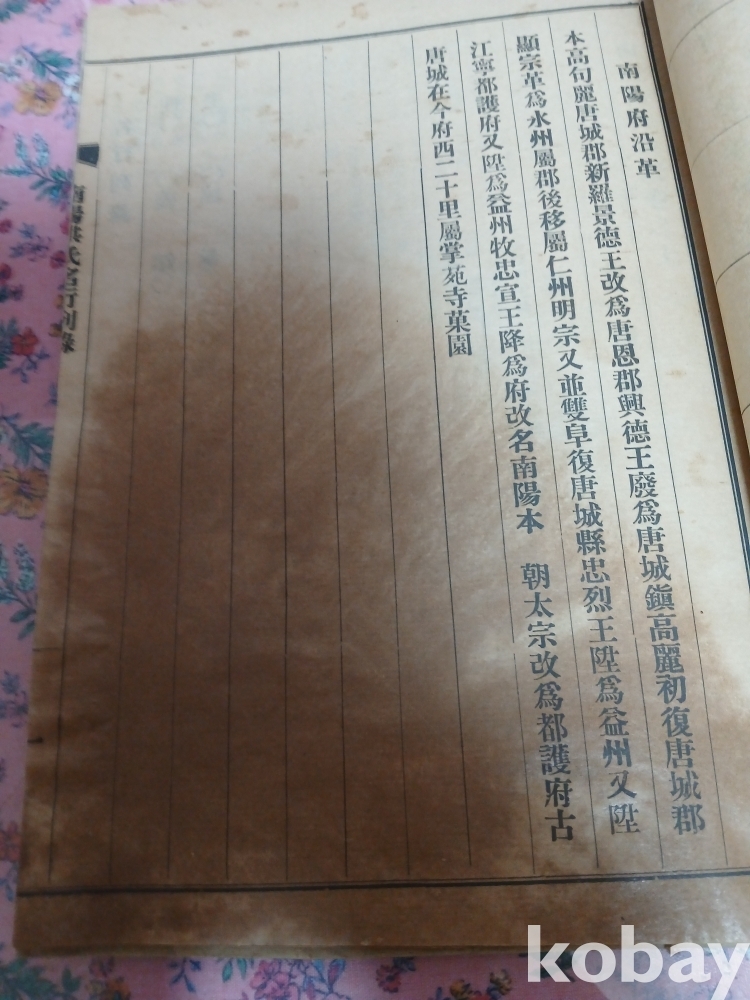 南陽府沿革
本高句麗唐城郡新羅景德王改爲唐恩郡興德王廢爲唐城鎭高麗初復唐城郡
顯宗革爲水州屬郡後移屬仁州明宗又並雙阜復唐城縣忠烈王陞爲益州又陞
江寧都護府又陞爲益州牧忠宣王降爲府改名南陽本 朝太宗改爲都護府古
唐城在今府西二十里屬掌苑寺菓園
kobay